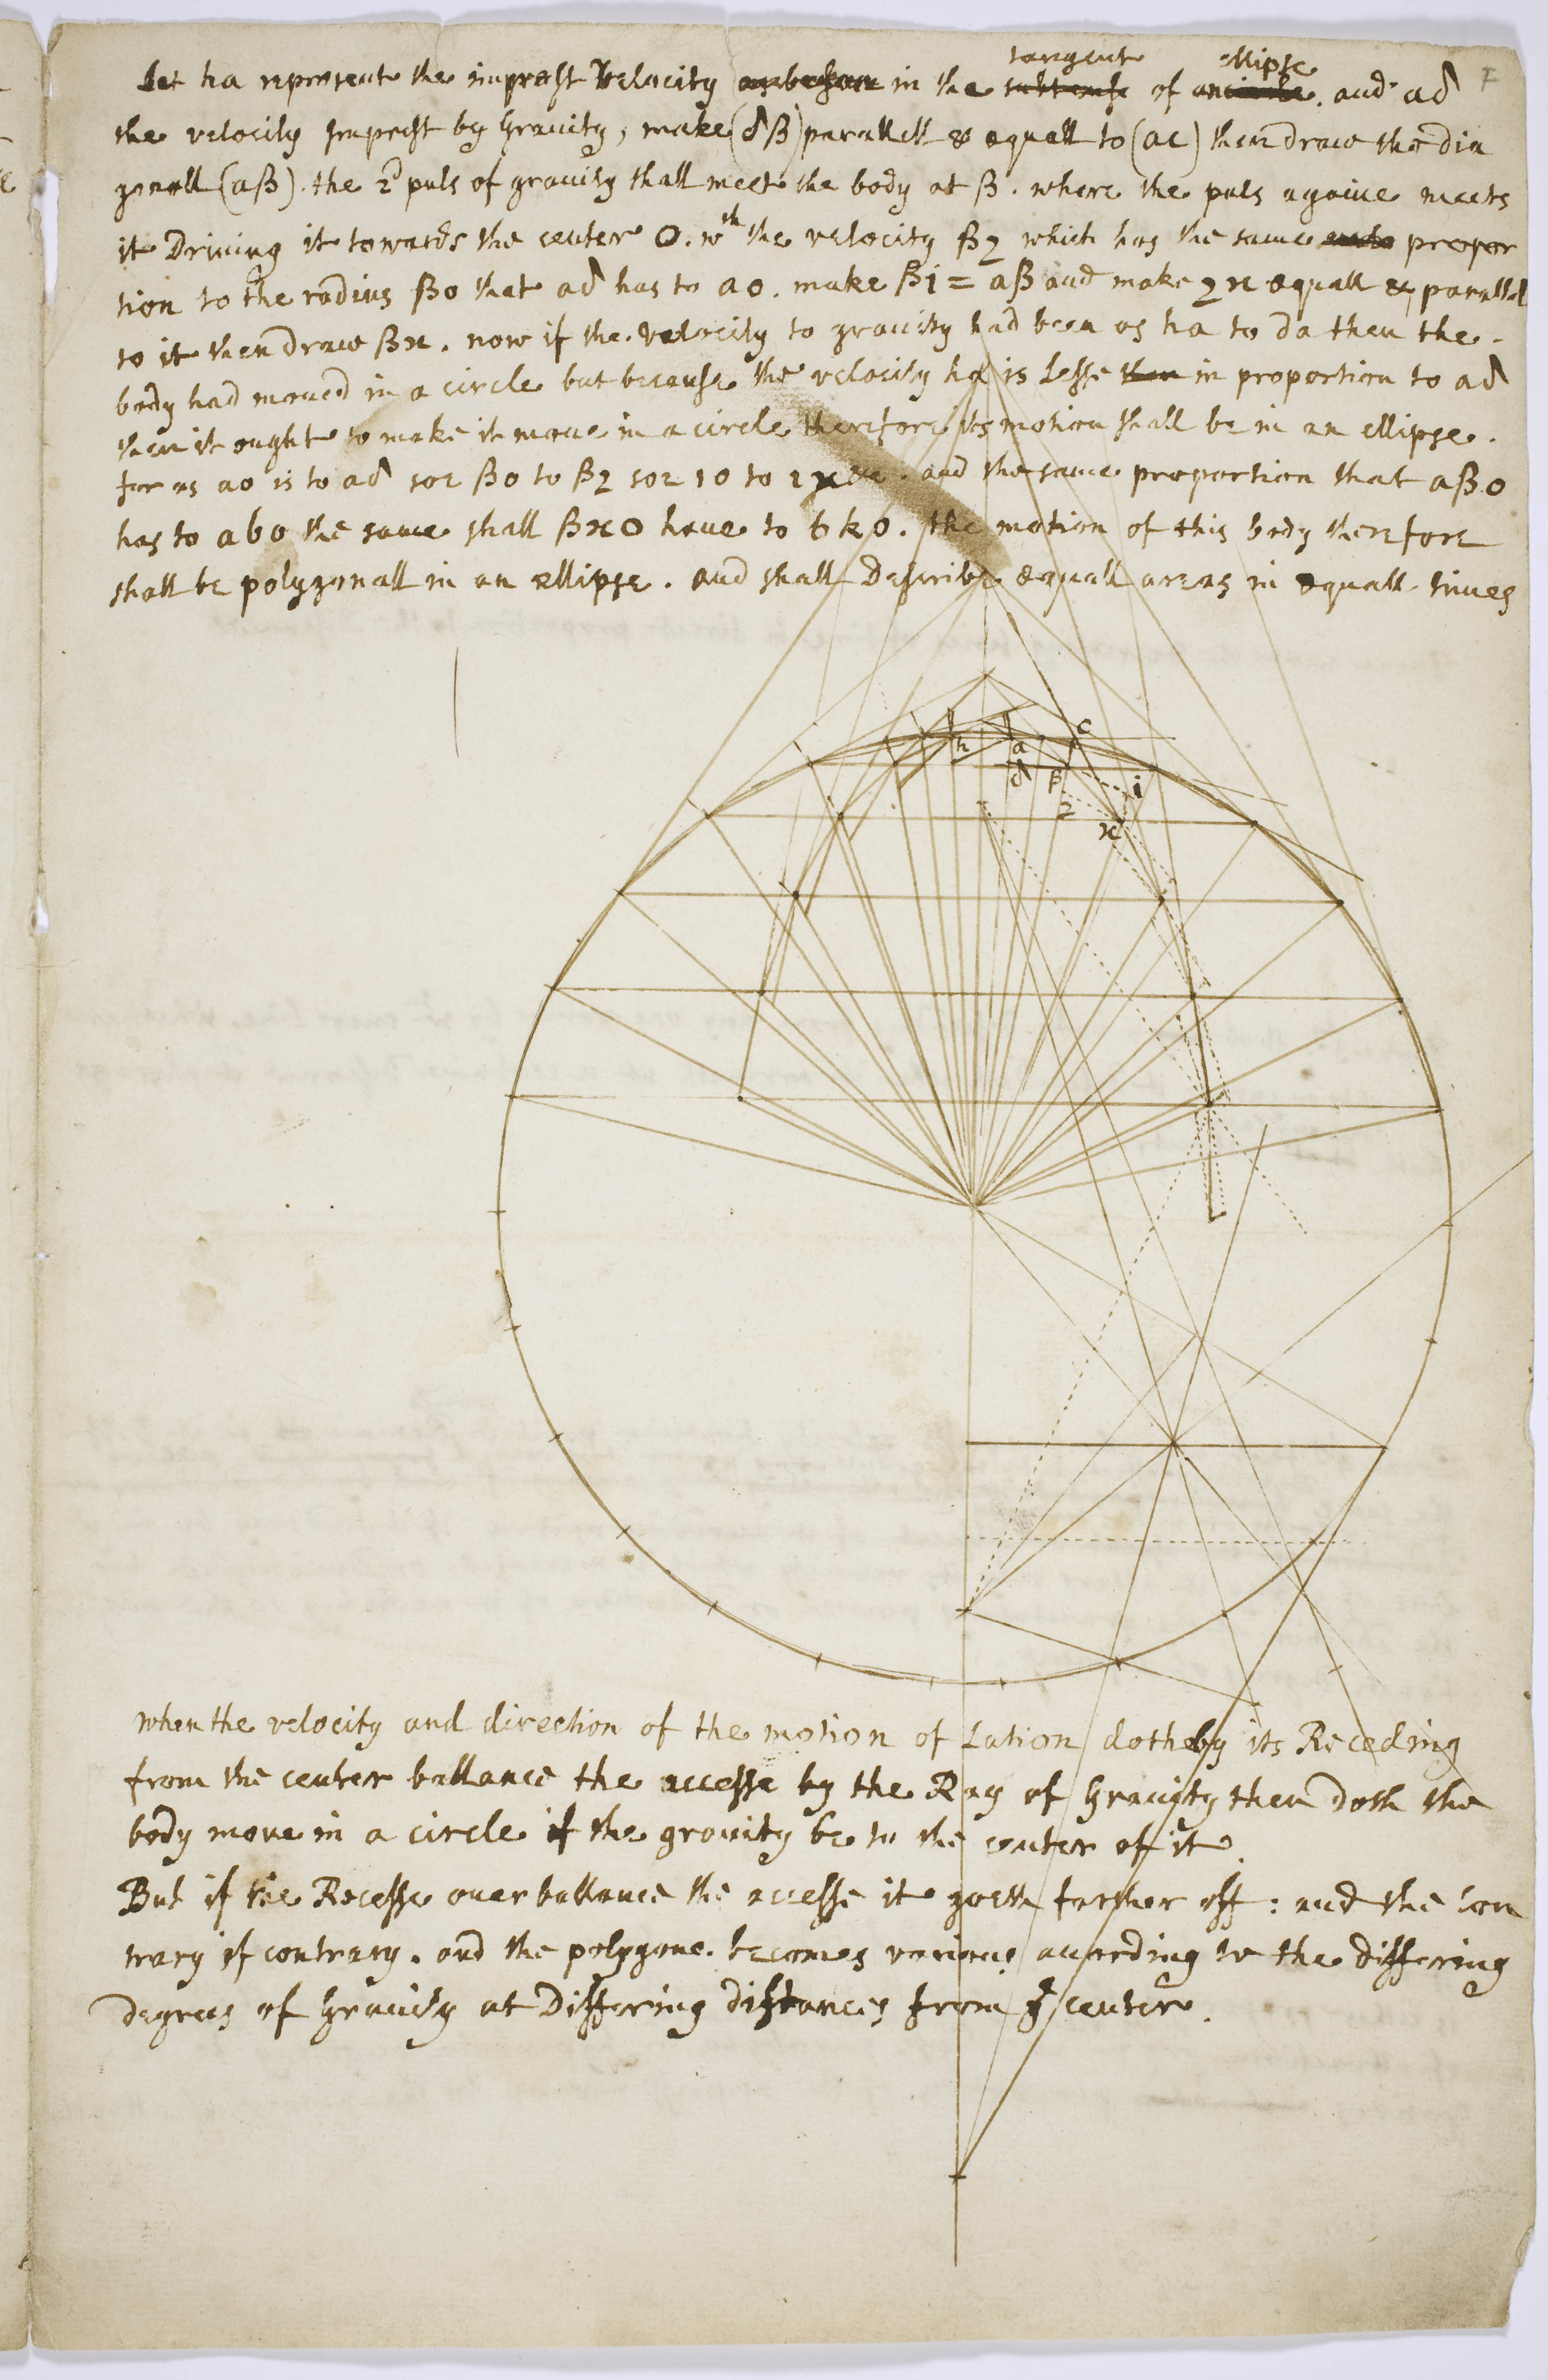 tangent ellipse
Let ha represent the imprest Velocity as before in the subtense of a circle. and ad
the velocity Imprest by Gravity, make (dβ) parallell & equall to (ac) then draw the dia
gonall (aβ). the 2d puls of gravity shall meet the body at β. where the puls againe meets
it Driving it towards the center O. wth the velocity β2 which has the same propor
tion to the radius βo that ad has to ao. make βi = aβ and make 2x equall & parallel
to it then draw βx. now if the velocity to gravity had been as ha to da then the
body had moved in a circle but because the velocity ha is Lesse then in proportion to ad
then it ought to make it move in a circle therefore its motion shall be in an ellipse.
for as ao is to ad soe βo to β2 soe io to ix &c. and the same proportion that aβo
has to abo the same shall βxo have to bko. the motion of this body therefore
shall be polygonall in an ellipse. and shall Describe equall areas in equall times
h a c
d β i
2
x
when the velocity and direction of the motion of Lation doth by its Receding
from the center ballance the accesse by the Ray of Gravity then Doth the
body move in a circle if the gravity be to the center of it.
But if the Recesse over ballance the accesse it goeth farther off: and the Con
trary if contrary. and the polygone becomes various according to the Differing
degrees of Gravity at Differing Distances from ye center.